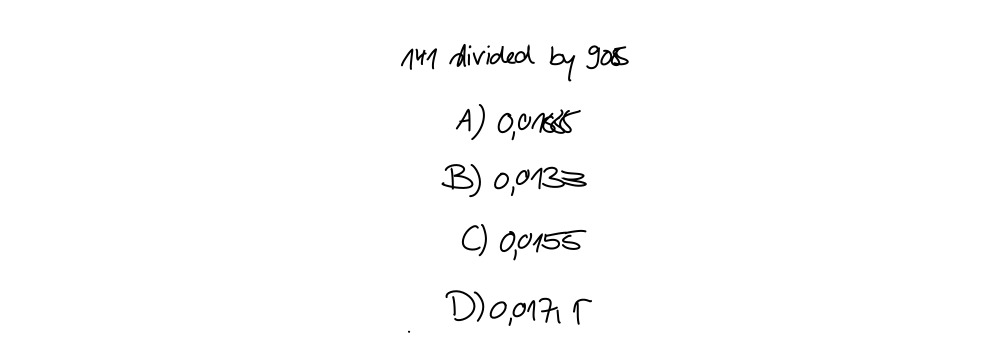 141 divided by 905
A) 0,01665
B) 0,0133
C) 0,0155
D) 0,017